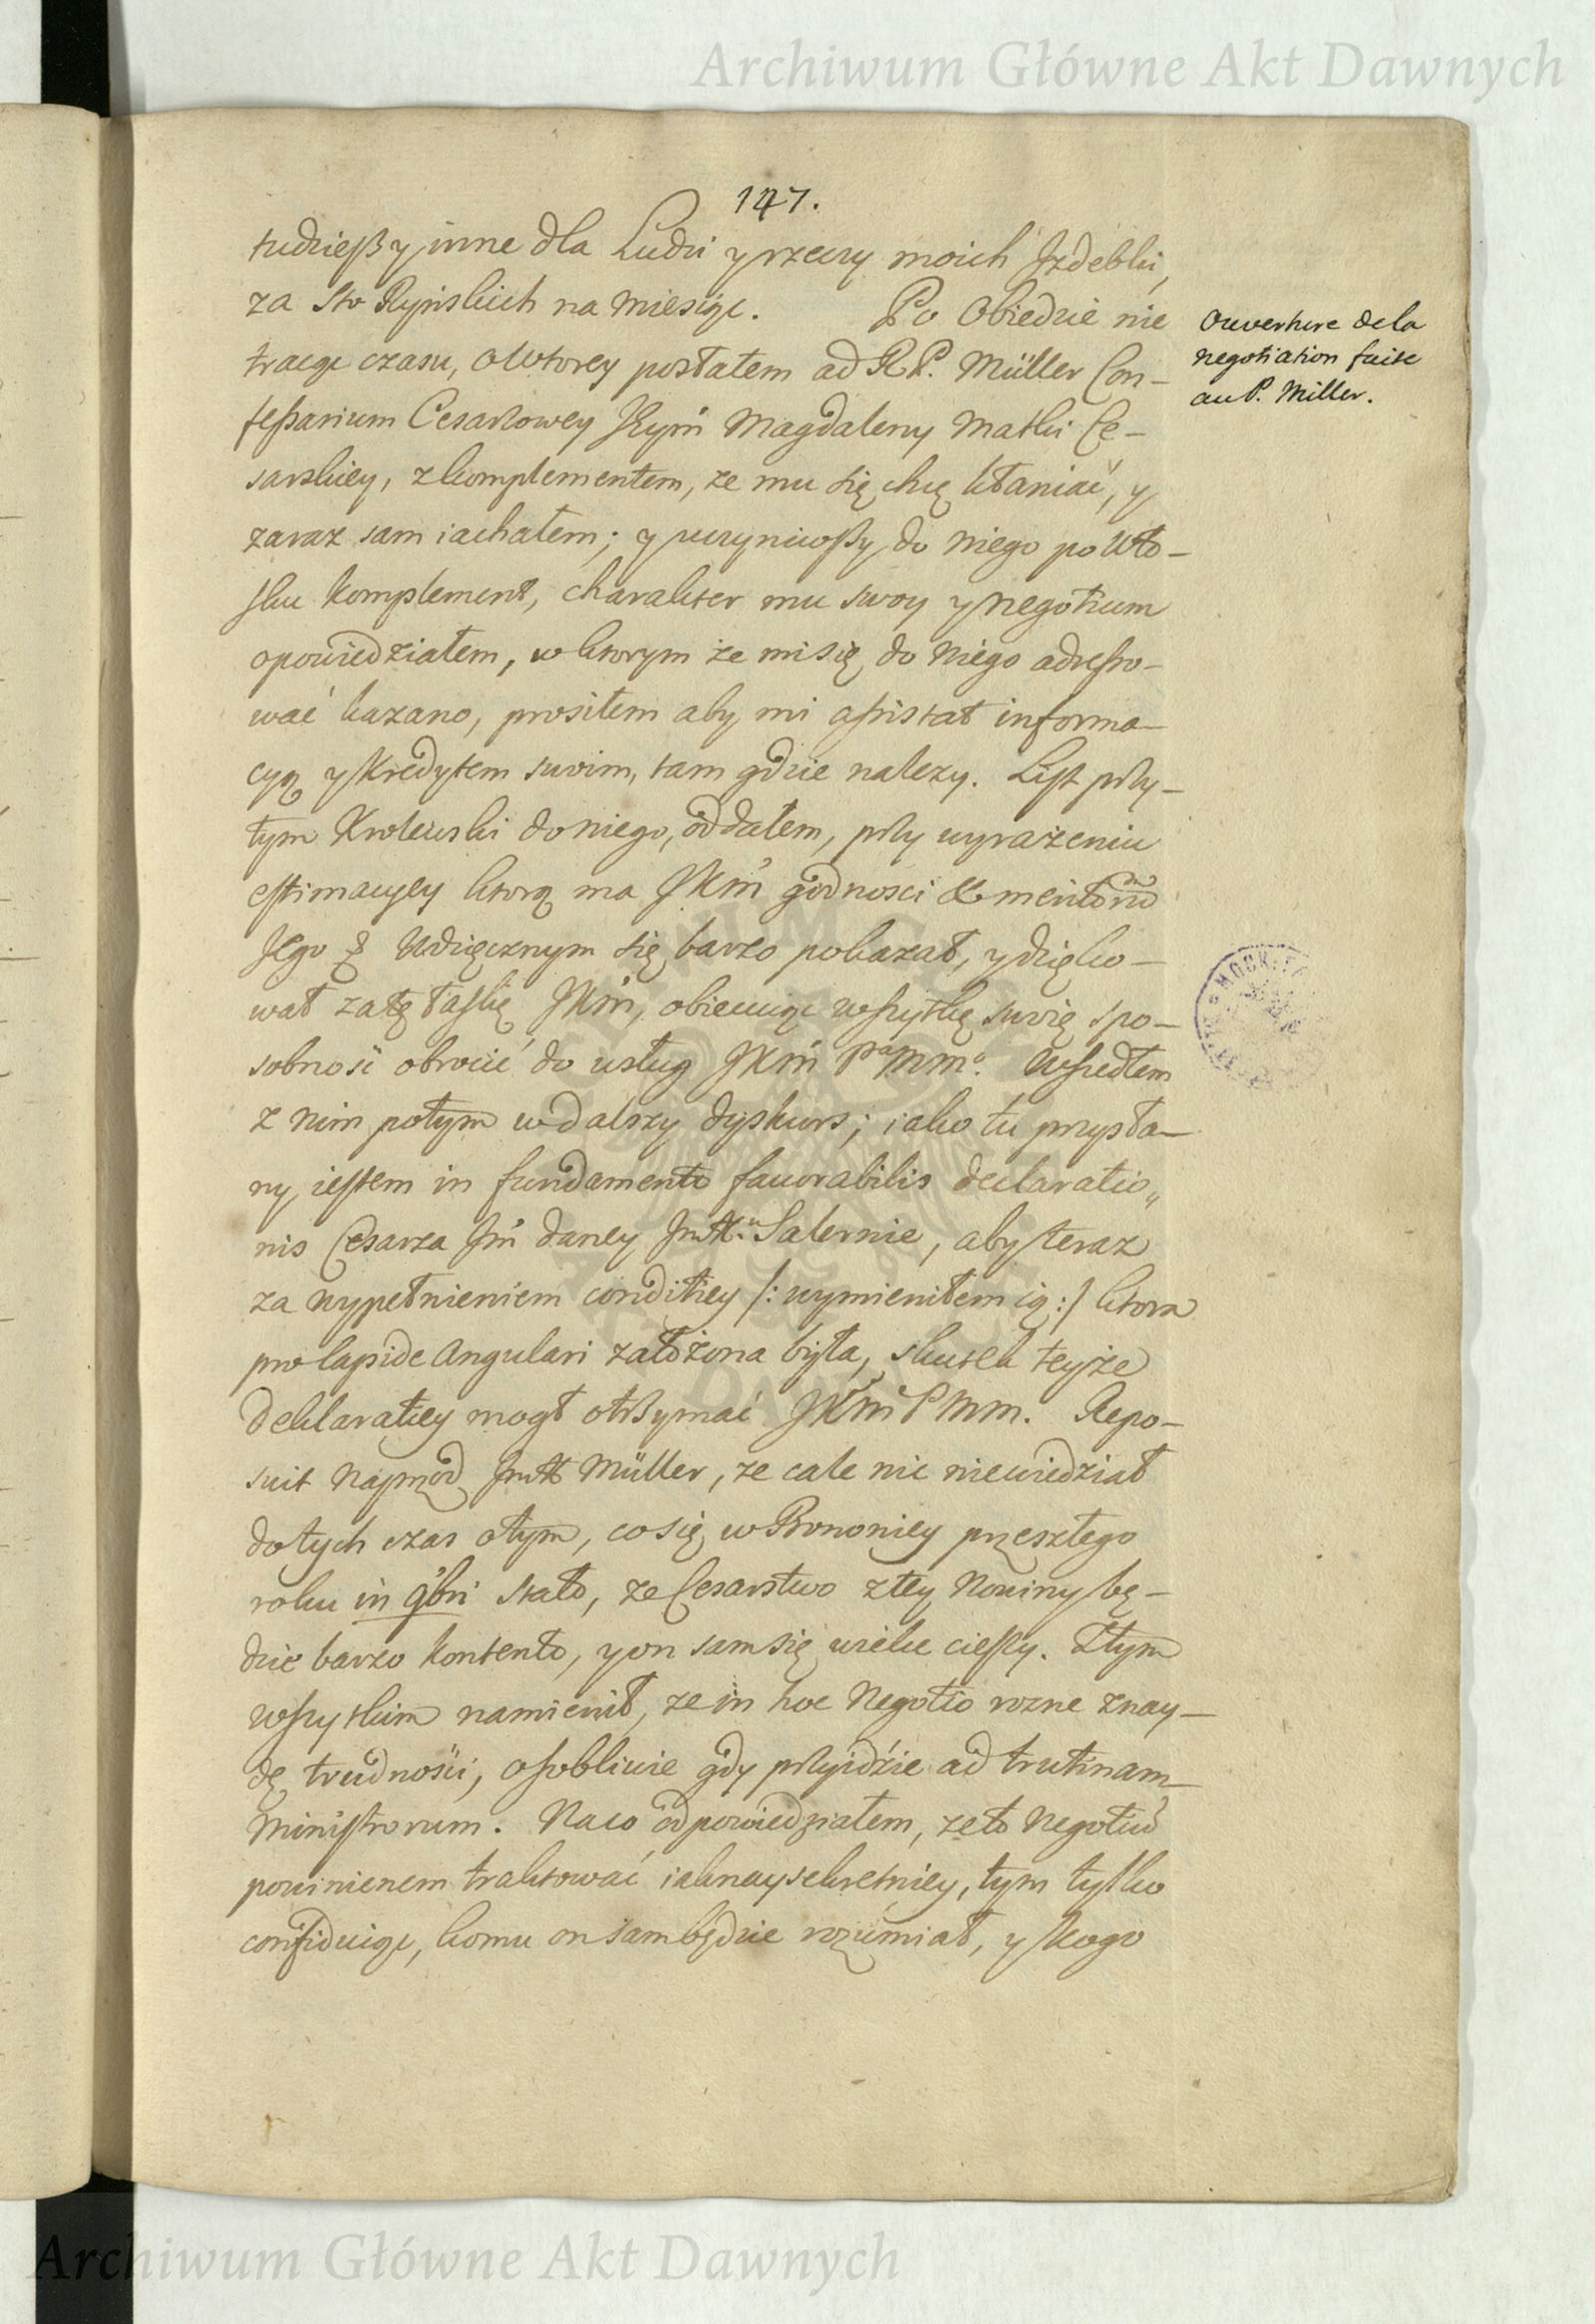 Archiwum Główne Akt Dawnych
147.
tudzieß y inne dla Ludzi y rzeczy moich Jzdebki,
za sto Ryńskich na Miesiąc. Po Obiedzie nie
tracąc czasu, o wtorey posłałem ad R.P. Müller Con-
feßarium Cesarzowey JEym̃ Magdaleny Matki Ce-
sarskiey, z komplementem, ze mu się chcę kłaniać, y
zaraz sam iachałem; y uczyniwßy do niego po Wło-
sku komplement, charakter mu swoy y negotium
opowiedziałem, w ktorym że mi się do niego adresso-
wać kazano, prosiłem aby mi assistał informa-
cyą y kredytem swoim, tam gdzie nalezy. List przy-
tym Krolewski do niego, oddałem, przy wyrażeniu
estimacyey ktorą ma JKm̃ godnosci & meritorũ
Jego Wdzięcznym się barzo pokazał, y dzięko-
wał za tę łaskę JKm̃, obiecuiąc wszytkę swoię spo-
sobność obrocić do usług JKm̃ Pª Mmº. Wszedłem
z nim potym w dalszy dyskurs; iako tu przysła-
ny iestem in fundamento favorabilis declaratio„
nis Cesarza Jm̃ daney JmX. Salernie, aby teraz
za wypełnieniem conditiey /: wymieniłem ią :/ ktora
pro lapide Angulari założona była, skutek teyże
deklaratiey mogł otrzymać JKm̃ P Mm. Repo-
suit Najprzod JmX Müller, ze cale nic niewiedział
do tych czas o tym, co się w Bononiey przeszłego
roku in 9bri stało, ze Cesarstwo z tey Nowiny bę-
dzie barzo kontento, y on sam się wielce cieszy. Z tym
wszytkim namienił, ze in hoc Negotio rozne znay-
dę trudności, osobliwie gdy przyidzie ad trutinam
Ministrorum. Na co odpowiedziałem, ze to Negotiũ
powinienem traktować iaknaysekretniey, tym tylko
confiduiąc, komu on sam będzie rozumiał, y kogo
Ouverture de la
negotiation faite
au P. Miller.
Archiwum Główne Akt Dawnych